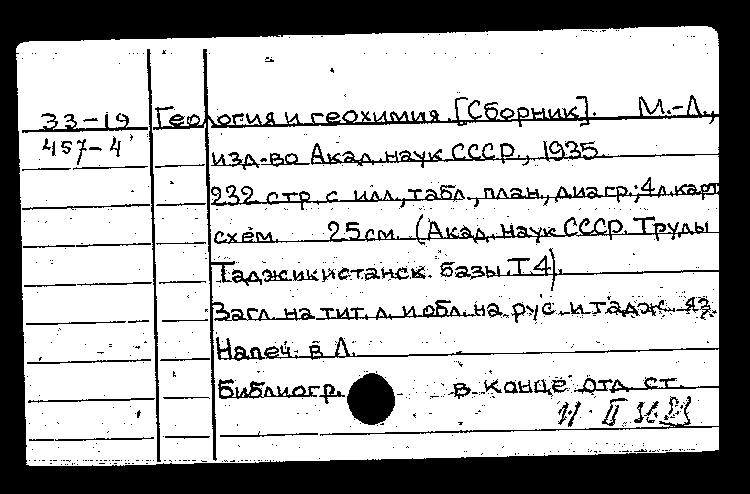 33-19 Геология и геохимия. [Сборник]. М.-Л.,
457-4 изд-во Акад. наук СССР, 1935.
232 стр. с илл., табл., план., диагр.; 4 л. карт
схем. 25 см. (Акад. наук СССР. Труды
Таджикистанск. базы. Т 4).
Загл. на тит. л. и обл. на рус. и тадж. яз.
Напеч. в Л.
Библиогр. в конце отд. ст.